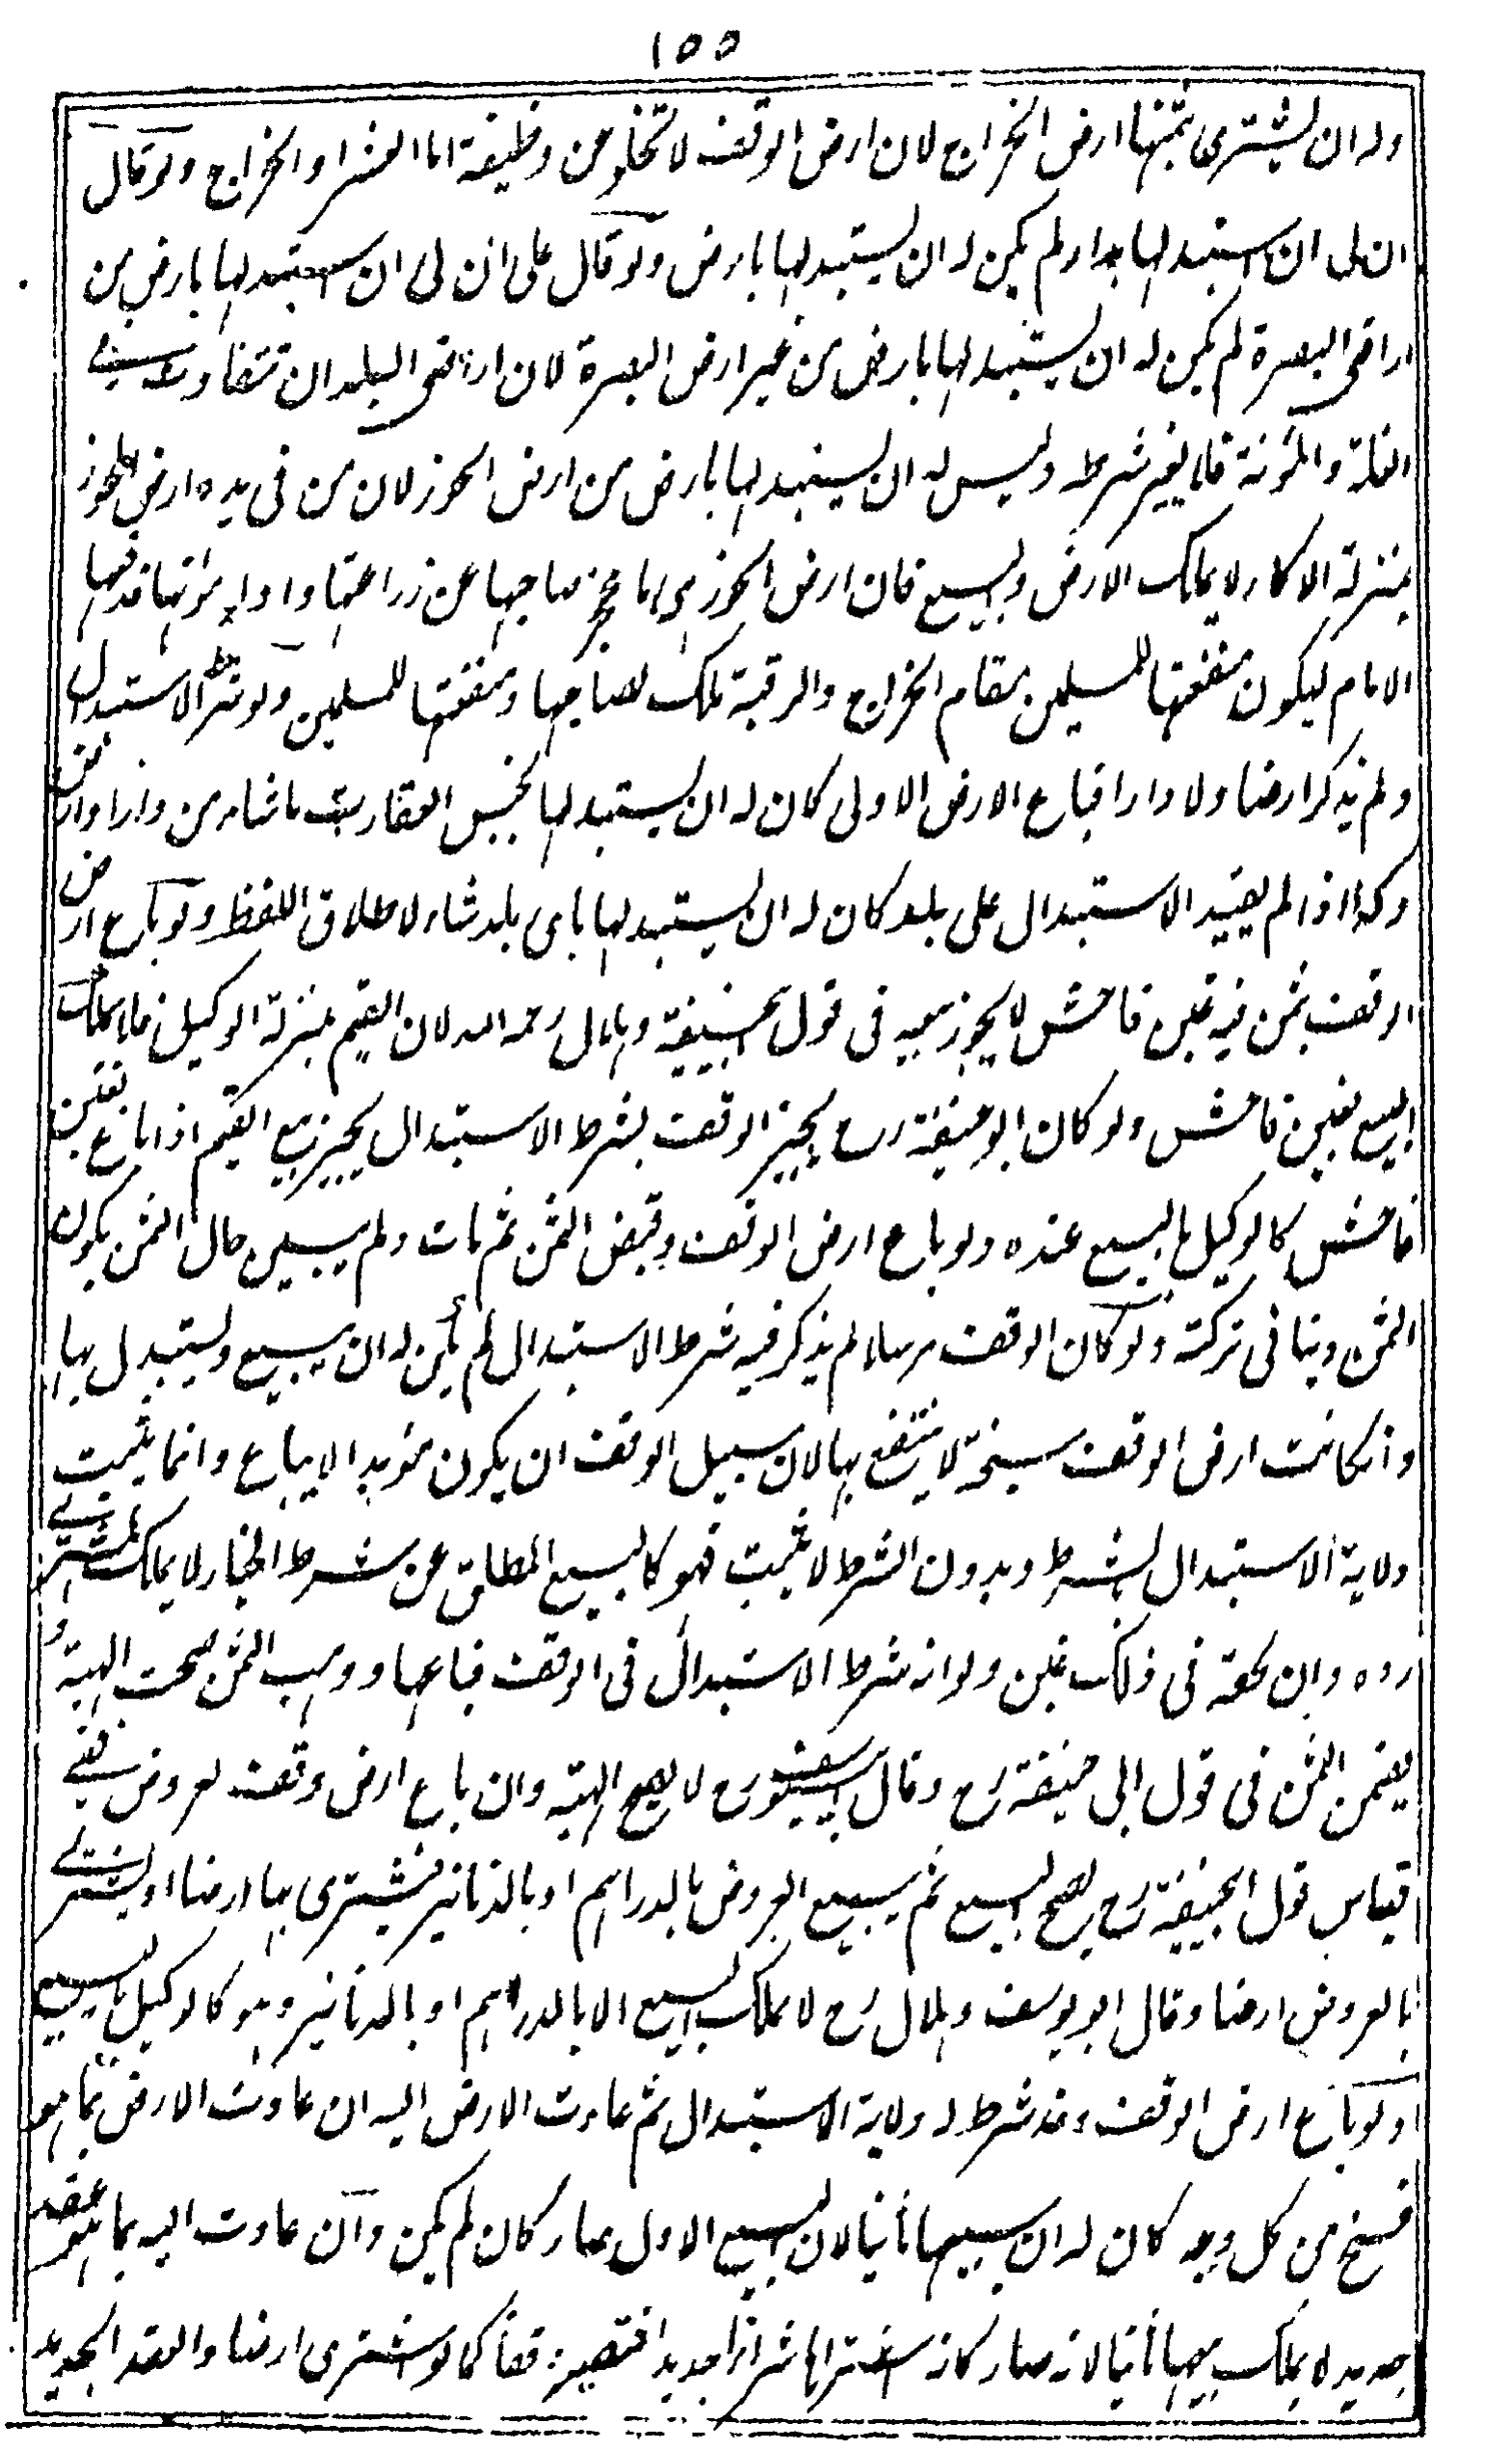 ١٥٥
وله ان يشترى بثمنها ارض الخراج لان ارض الوقف لا تخلو عن وظيفة اما العشر او الخراج ولو قال
ان لى ان استبدلها بدار لم يكن له ان يستبدلها بارض ولو قال على ان لى ان استبدلها بارض من
اراضى البصرة لم يكن له ان يستبدلها بارض من غير ارض البصرة لان اراضى البلدان تتفاوت فى
الغلة والمؤنة فلا يغير شرطه وليس له ان يستبدلها بارض من ارض الحوز لان من فى يده ارض الحوز
بمنزلة الاكار لا يملك الارض ولبيع فان ارض الحوز ما عجز صاحبها عن زراعتها واداء مؤنتها فدفعها
الامام ليكون منفعتها للمسلمين مقام الخراج والرقبة ملك لصاحبها ومنفعتها للمسلمين ولو شرط الاستبدال
ولم يذكر ارضا ولا دارا فباع الارض الاولى كان له ان يستبدلها بجنس العقارت ما شاء من دار او ارض
وكذا اذا لم يقيد الاستبدال على بلد كان له ان يستبدلها باى بلد شاء لاطلاق اللفظ ولو باع ارض
الوقف بثمن فيه غبن فاحش لا يجوز بيعه فى قول ابحنيفة وهلال رحمه الله لان القيم بمنزلة الوكيل فلا يملك
البيع بغبن فاحش ولو كان ابو حنيفة رح يجيز الوقف بشرط الاستبدال يجيز بيع القيم اذا باع بغبن
فاحش كالوكيل بالبيع عنده ولو باع ارض الوقف وقبض الثمن ثم مات ولم يبين حال الثمن يكون
الثمن دينا فى تركته ولو كان الوقف مرسلا لم يذكر فيه شرط الاستبدال لم يكن له ان يبيع ويستبدل بها
وانكانت ارض الوقف سبخة لا ينتفع بها لان سبيل الوقف ان يكون مؤبدا لا يباع وانما يثبت
ولاية الاستبدال بشرط وبدون الشرط لا يثبت فهو كالبيع المطلق عن شرط الخيار لا يملك المشترى
رده وان لحقه فى ذلك غبن ولو انه شرط الاستبدال فى الوقف فباعها ووهب الثمن صحت الهبة و
يضمن الثمن فى قول ابى حنيفة رح وقال ابو يوسف رح لا يصح الهبة وان باع ارض وقف لعروض ففى
قياس قول ابحنيفة رح يصح البيع ثم يبيع العروض بالدراهم او بالدنانير فيشترى بها ارضا او يشترى
بالعروض ارضا وقال ابو يوسف وهلال رح لا يملك البيع الا بالدراهم او بالدنانير وهو كالوكيل بالبيع
ولو باع ارض الوقف وقد شرط له ولاية الاستبدال ثم عادت الارض اليه ان عادت الارض بما هو
فسخ من كل وجه كان له ان يبيعها ثانيا لان البيع الاول صار كان لم يكن وان عادت اليه بما هو عقد
جديد لا يملك بيعها ثانيا لانه صار كانه اشتراها شراء جديدا فتصير وقفا كما لو اشترى ارضا والعقد الجديد